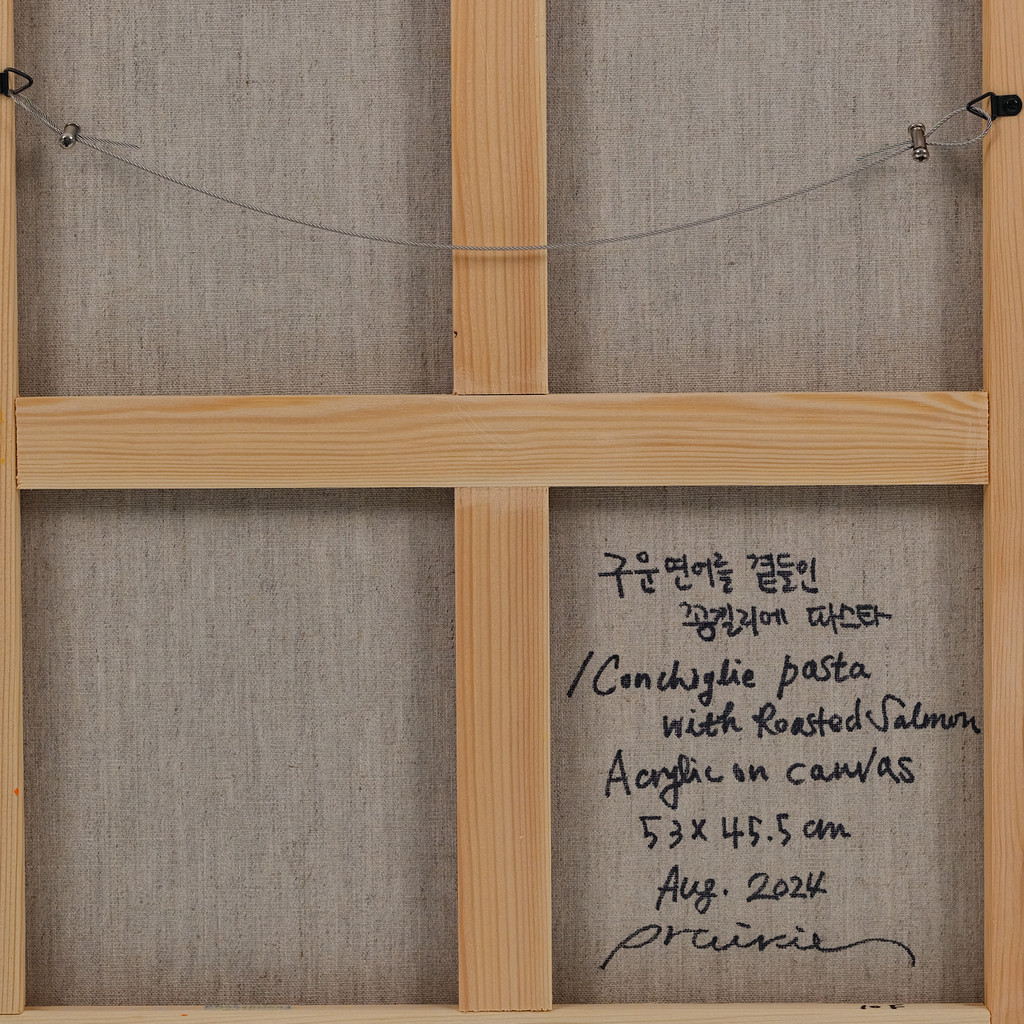 구운 연어를 곁들인
꽁킬리에 파스타
/Conchiglie pasta
with Roasted Salmon
Acrylic on canvas
53 x 45.5 cm
Aug. 2024
prairie